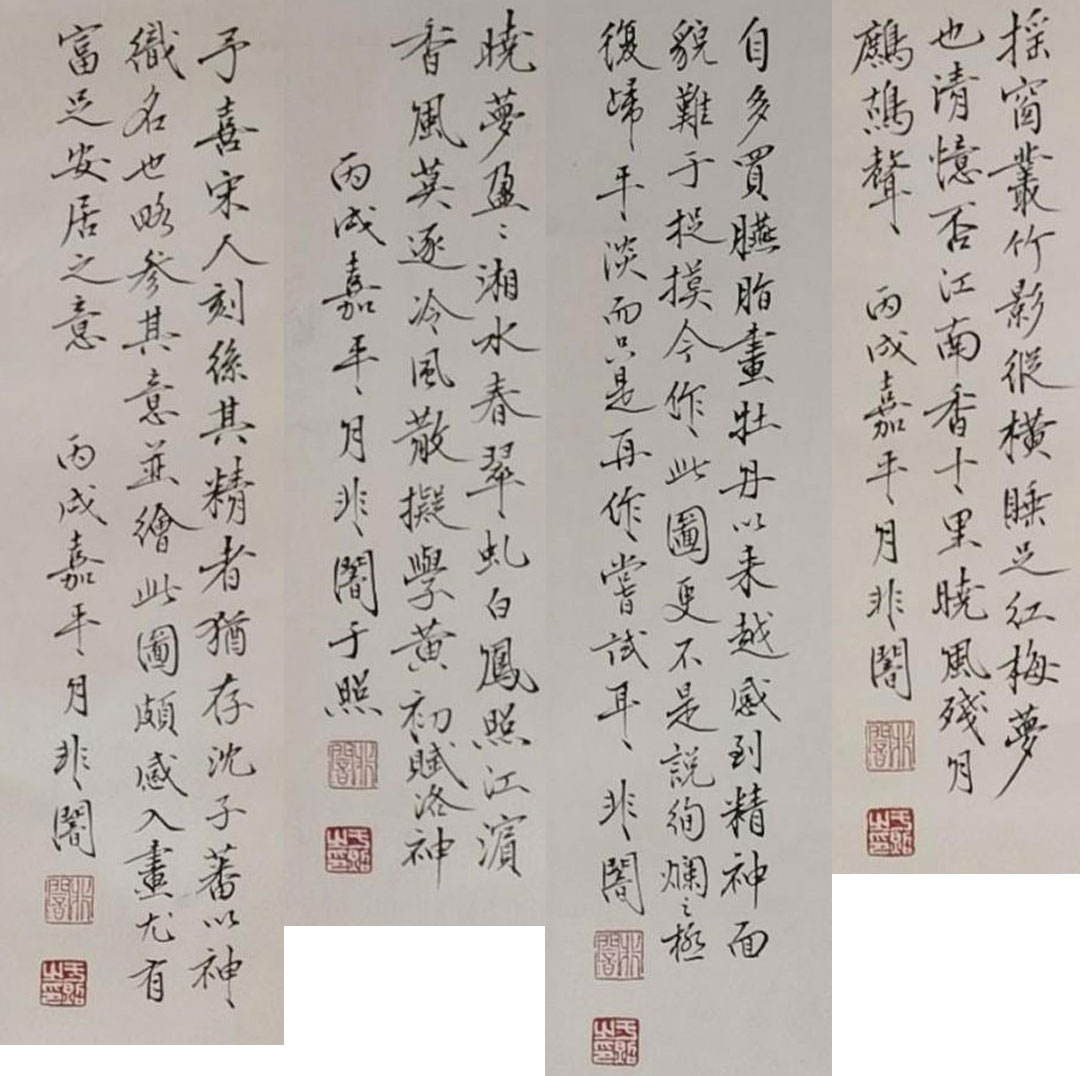 搖窗叢竹影縱橫睡足红梅夢
也清憶否江南香十里曉風殘月
鷓鴣聲 丙戌嘉平月非闇
非闇
于照之印
自多買臙脂畫牡丹以来越感到精神面
貌難于捉摸今作此圖更不是説絢爛之極
復歸平淡而只是再作嘗試耳 非闇
非闇
于照之印
曉夢盈〻湘水春翠虬白鳳照江濱
香風莫逐冷風散擬學黄初賦洛神
丙戌嘉平月非闇于照
非闇
于照之印
予喜宋人刻絲其精者猶存沈子蕃以神
織名也略參其意並繪此圖頗感入畫尤有
富足安居之意 丙戌嘉平月非闇
非闇
于照之印